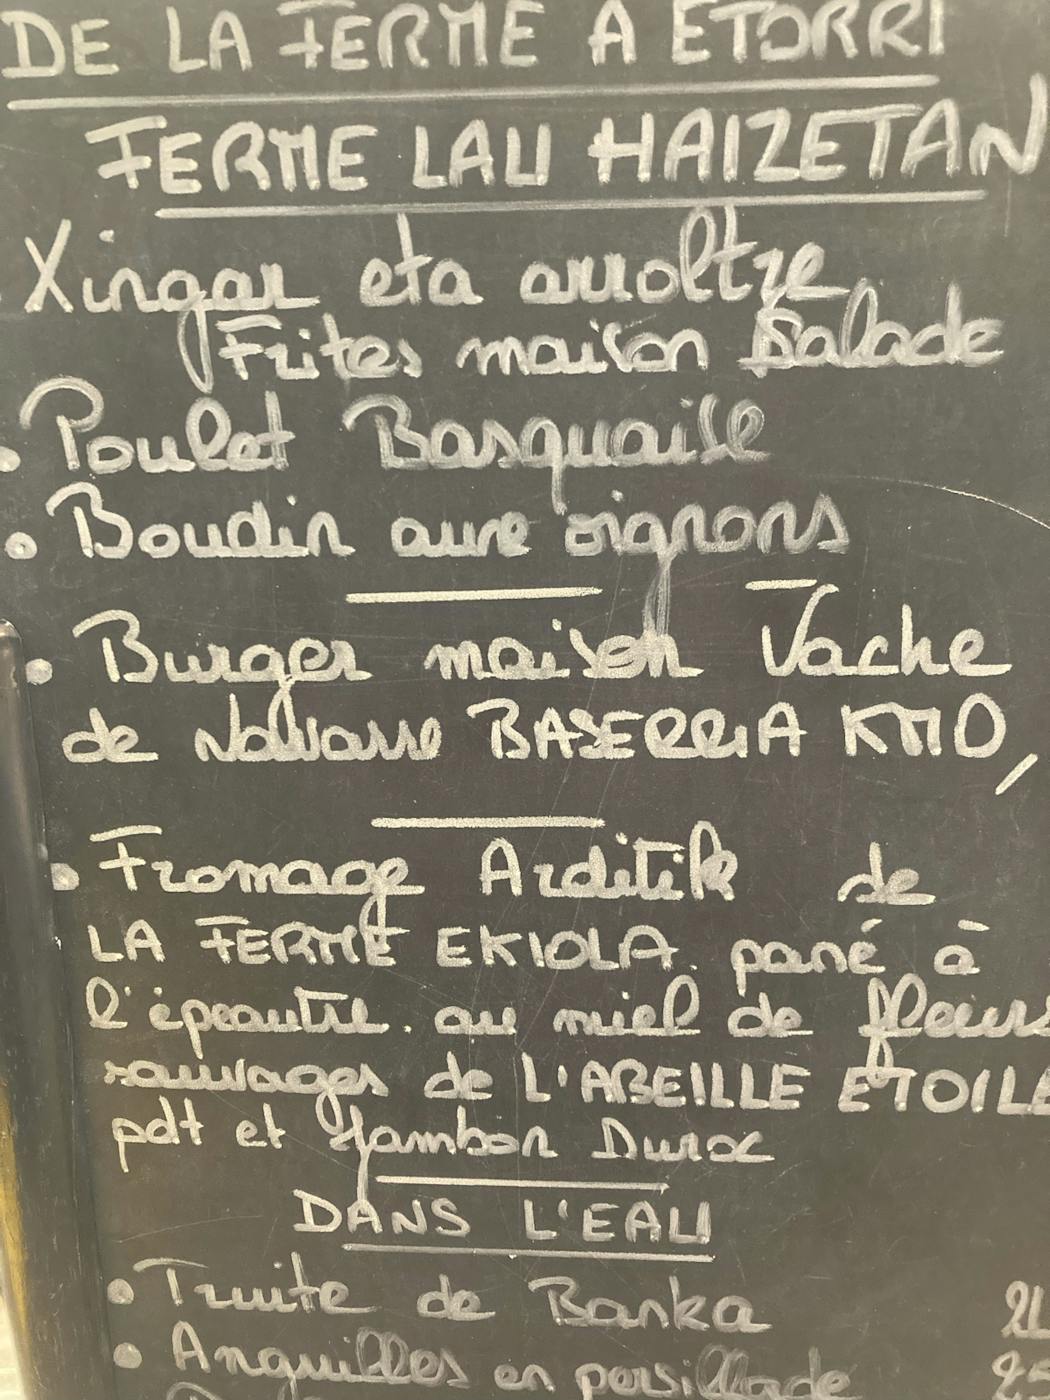 DE LA FERME A ETORRI
FERME LAU HAIZETAN
Xingar eta arroltze
Frites maison Salade
• Poulet Basquaise
• Boudin aux oignons
• Burger maison Vache
de Navarre BASERRIA KM0,
• Fromage Arditik de
LA FERME EKIOLA. pané à
l'épeautre. au miel de fleurs
sauvages de L'ABEILLE ETOILE
pdt et Jambon Duroc
DANS L'EAU
• Truite de Banka
• Anguilles en persillade